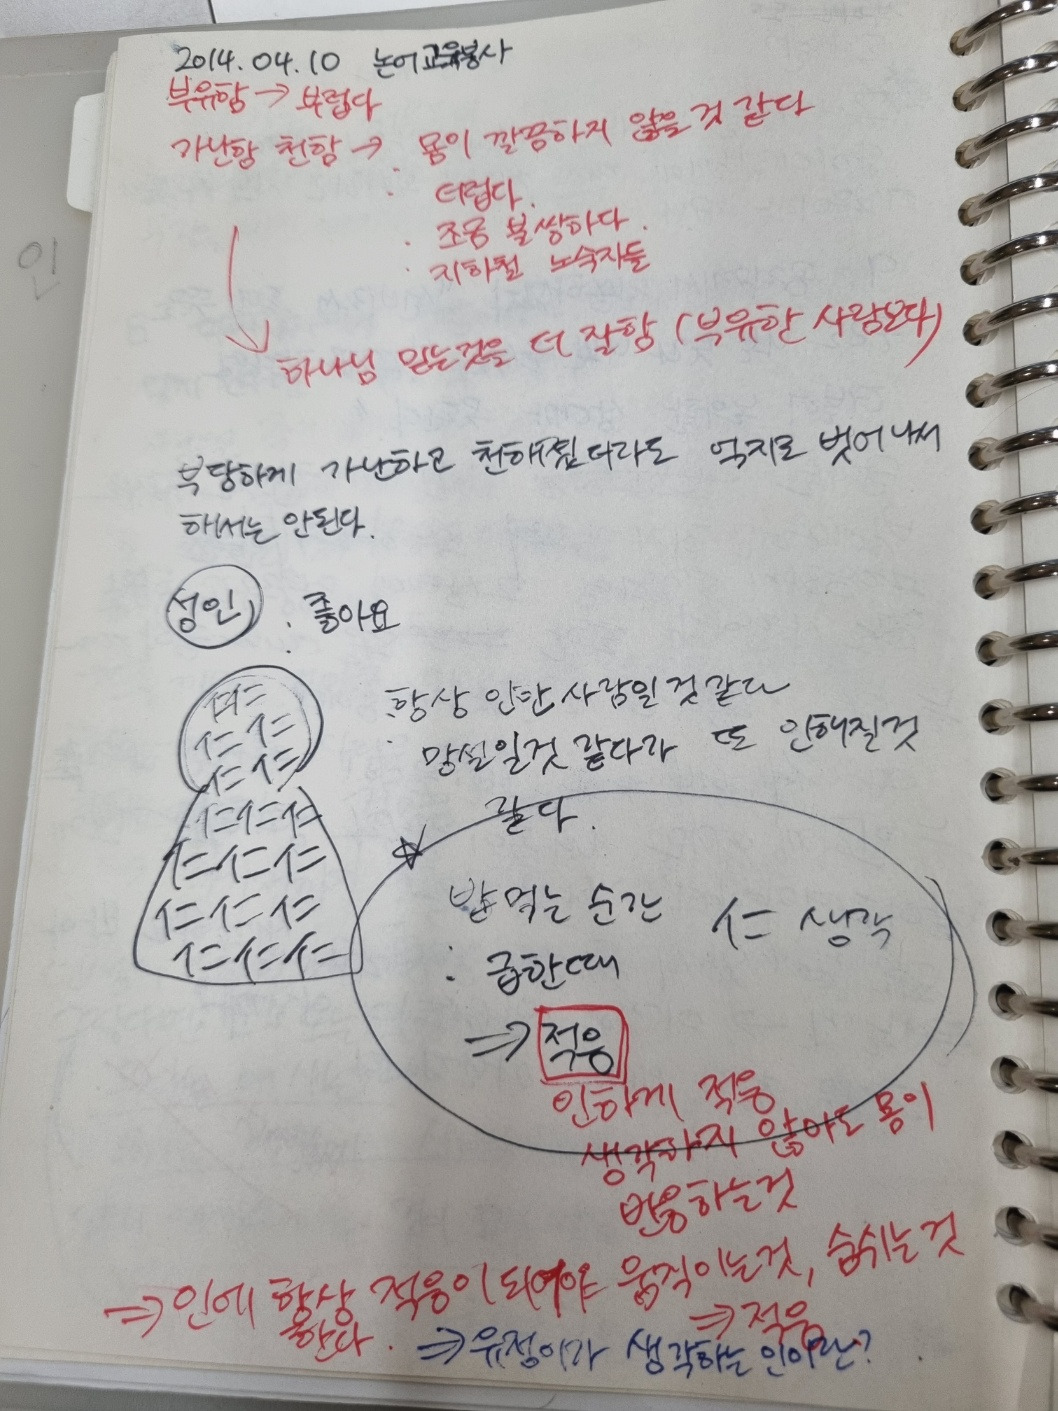 2014.04.10 논어교육봉사
부유함 → 부럽다
가난함 천함 → 몸이 깔끔하지 않을 것 같다
· 더럽다.
· 조금 불쌍하다.
· 지하철 노숙자들
하나님 믿는것을 더 잘함 (부유한 사람보다)
인
부당하게 가난하고 천해진다라도 억지로 벗어나서
해서는 안된다.
성인 . 좋아요
· 항상 인한 사람일 것 같다
· 망설일것 같다가 또 인해질것
같다.
仁仁
仁 仁
仁 仁
仁仁仁
仁仁仁
仁仁仁
仁仁仁
☆
밥 먹는 순간 仁 생각
: 급한때
⇒ 적응
인하게 적응
생각하지 않아도 몸이
반응하는것
⇒ 인에 항상 적응이 되어야 움직이는것, 숨쉬는것
한다. ⇒ 적응
⇒ 유정이가 생각하는 인이란?